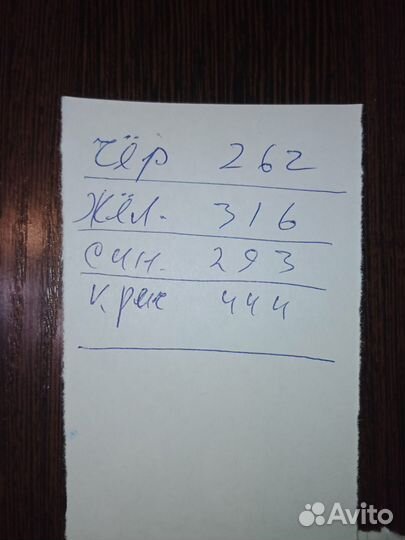 Чёр 262
Жёл. 316
Син. 293
Крас 444
Avito